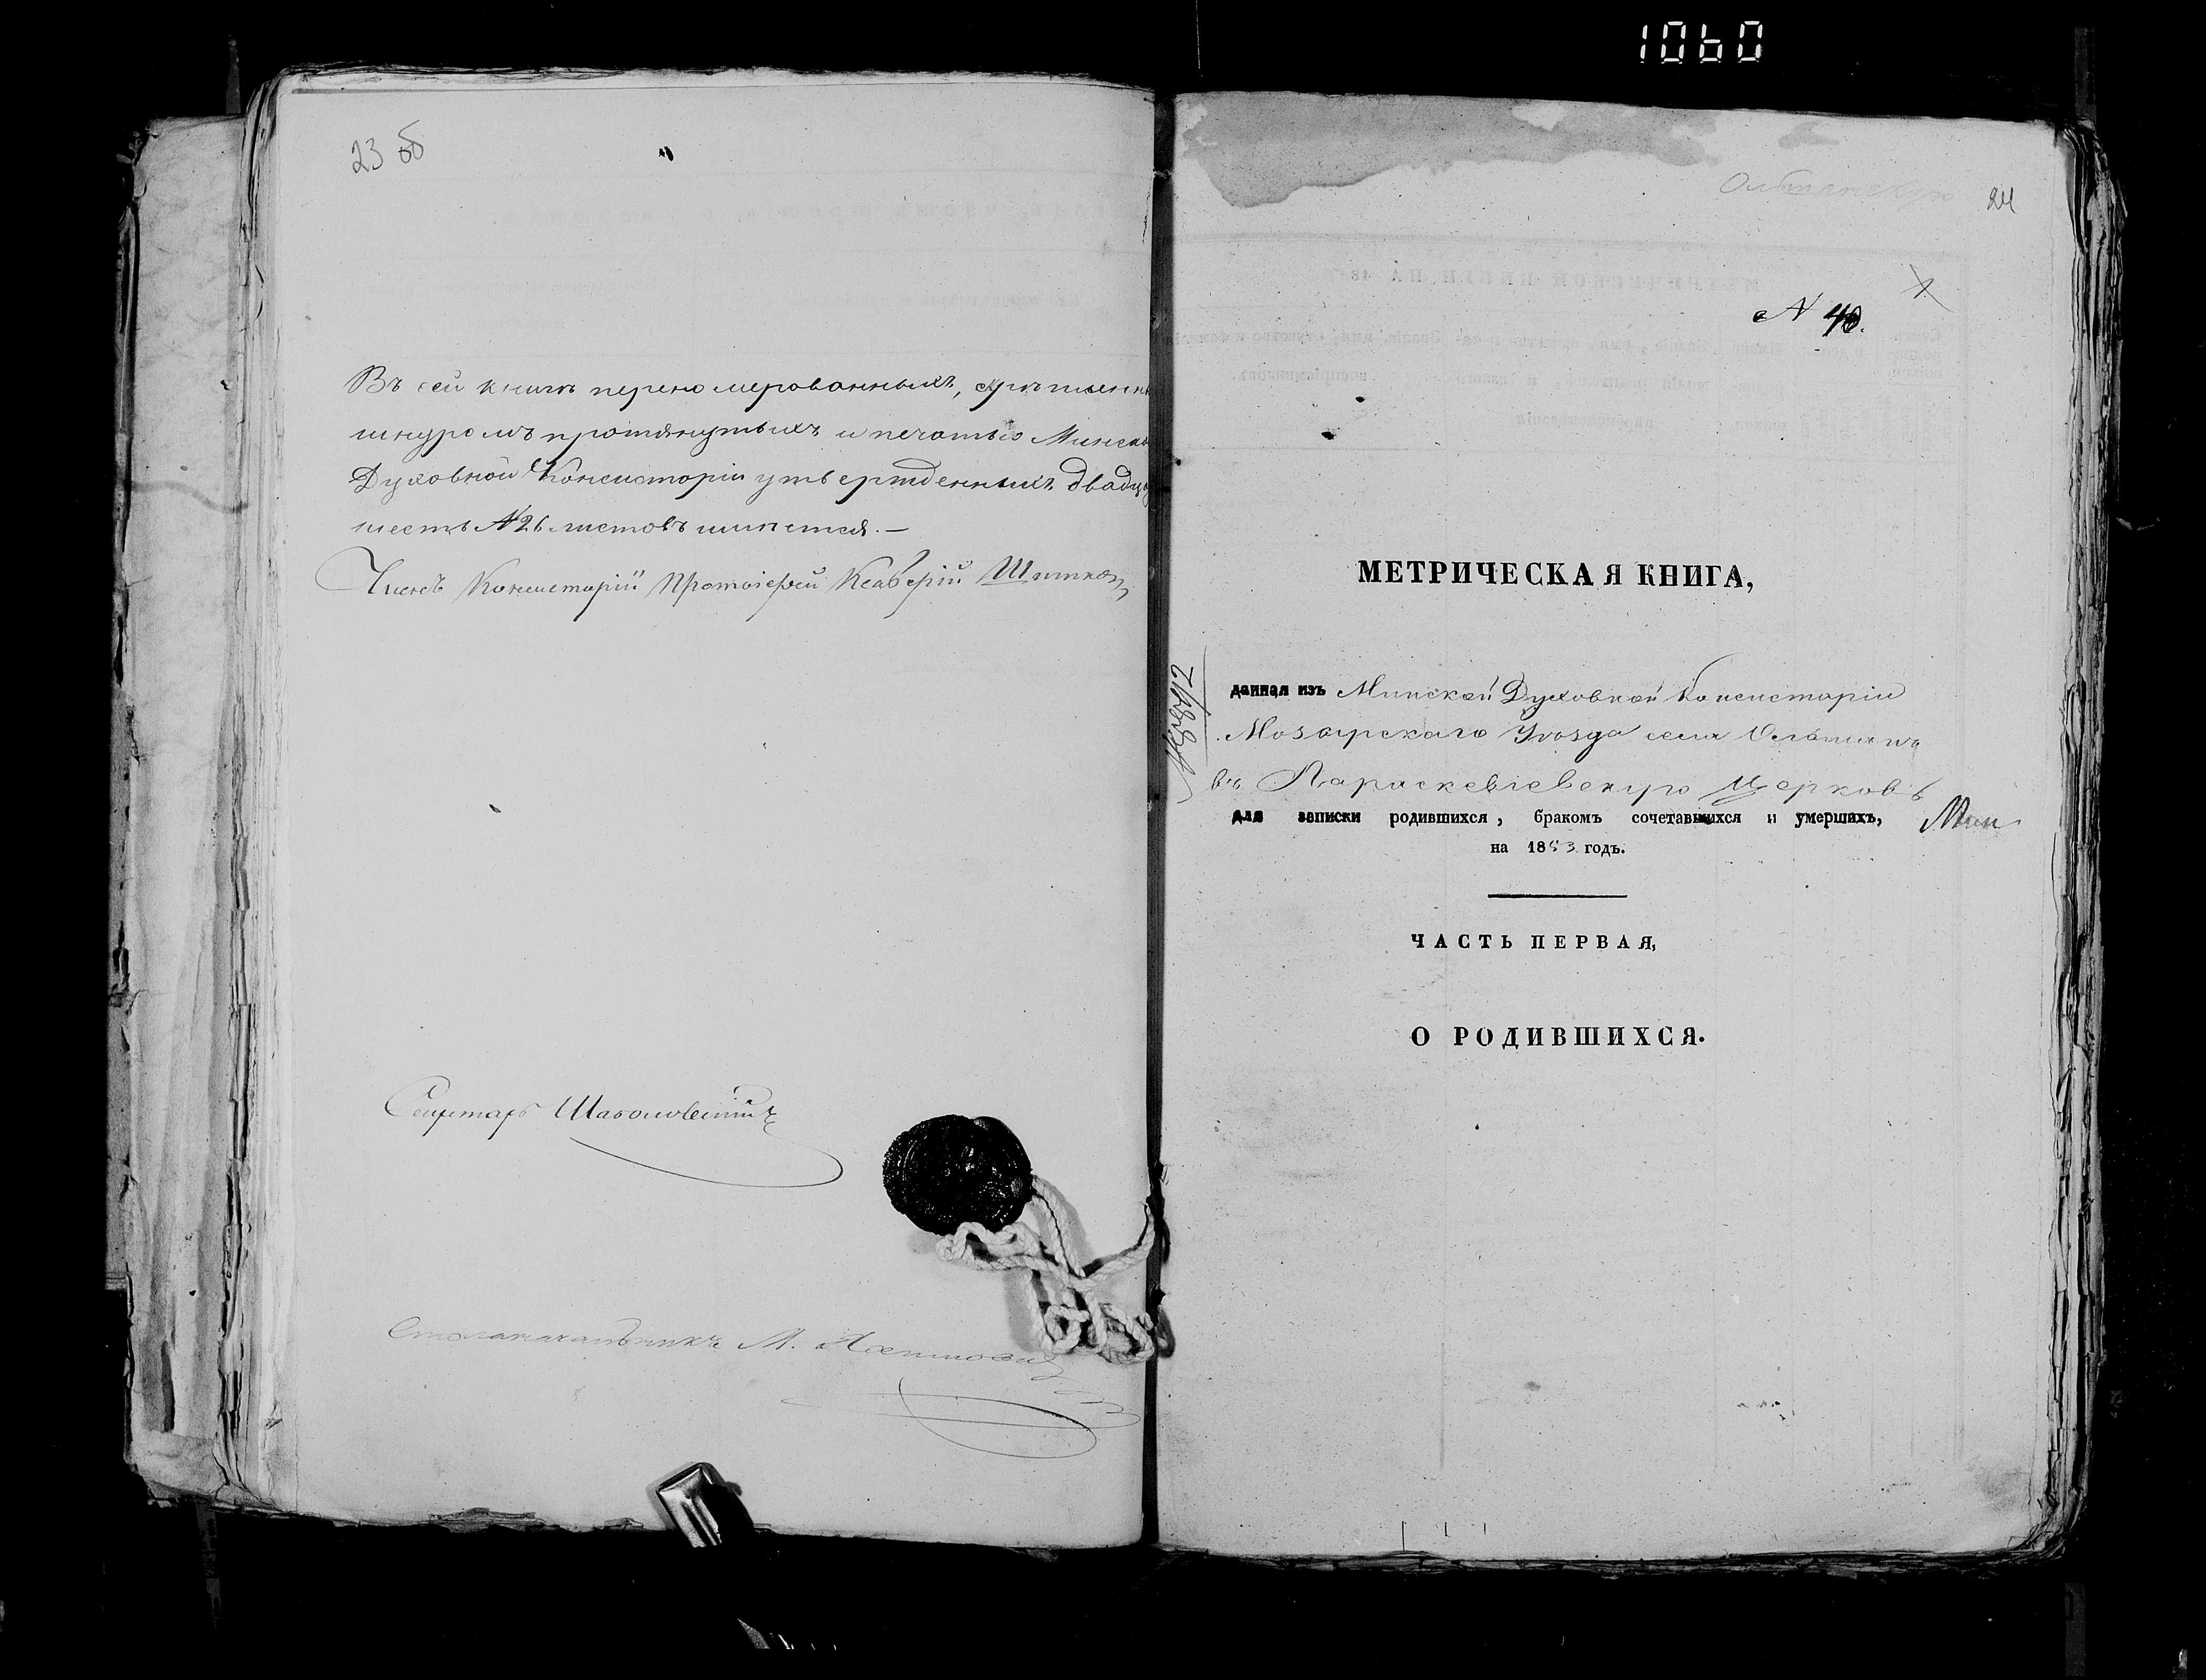 1060
23 об
Въ сей книгѣ перенумерованныхъ,
шнуромъ протянутыхъ и печатью Минско
Духовной Консисторіи утвержденныхъ двадца
шесть № 26 листовъ имѣется. —
Членъ Консисторіи Протоіерей Ксаверій
Секретарь
Столоначальникъ М.
24
N 40.
МЕТРИЧЕСКАЯ КНИГА,
данная изъ Минской Духовной Консисторіи
Мозырскаго Уѣзда села Ольманъ
въ Параскевіевскую Церковь
для записки родившихся, бракомъ сочетавшихся и умершихъ, Мин
на 1853 годъ.
ЧАСТЬ ПЕРВАЯ,
О РОДИВШИХСЯ.